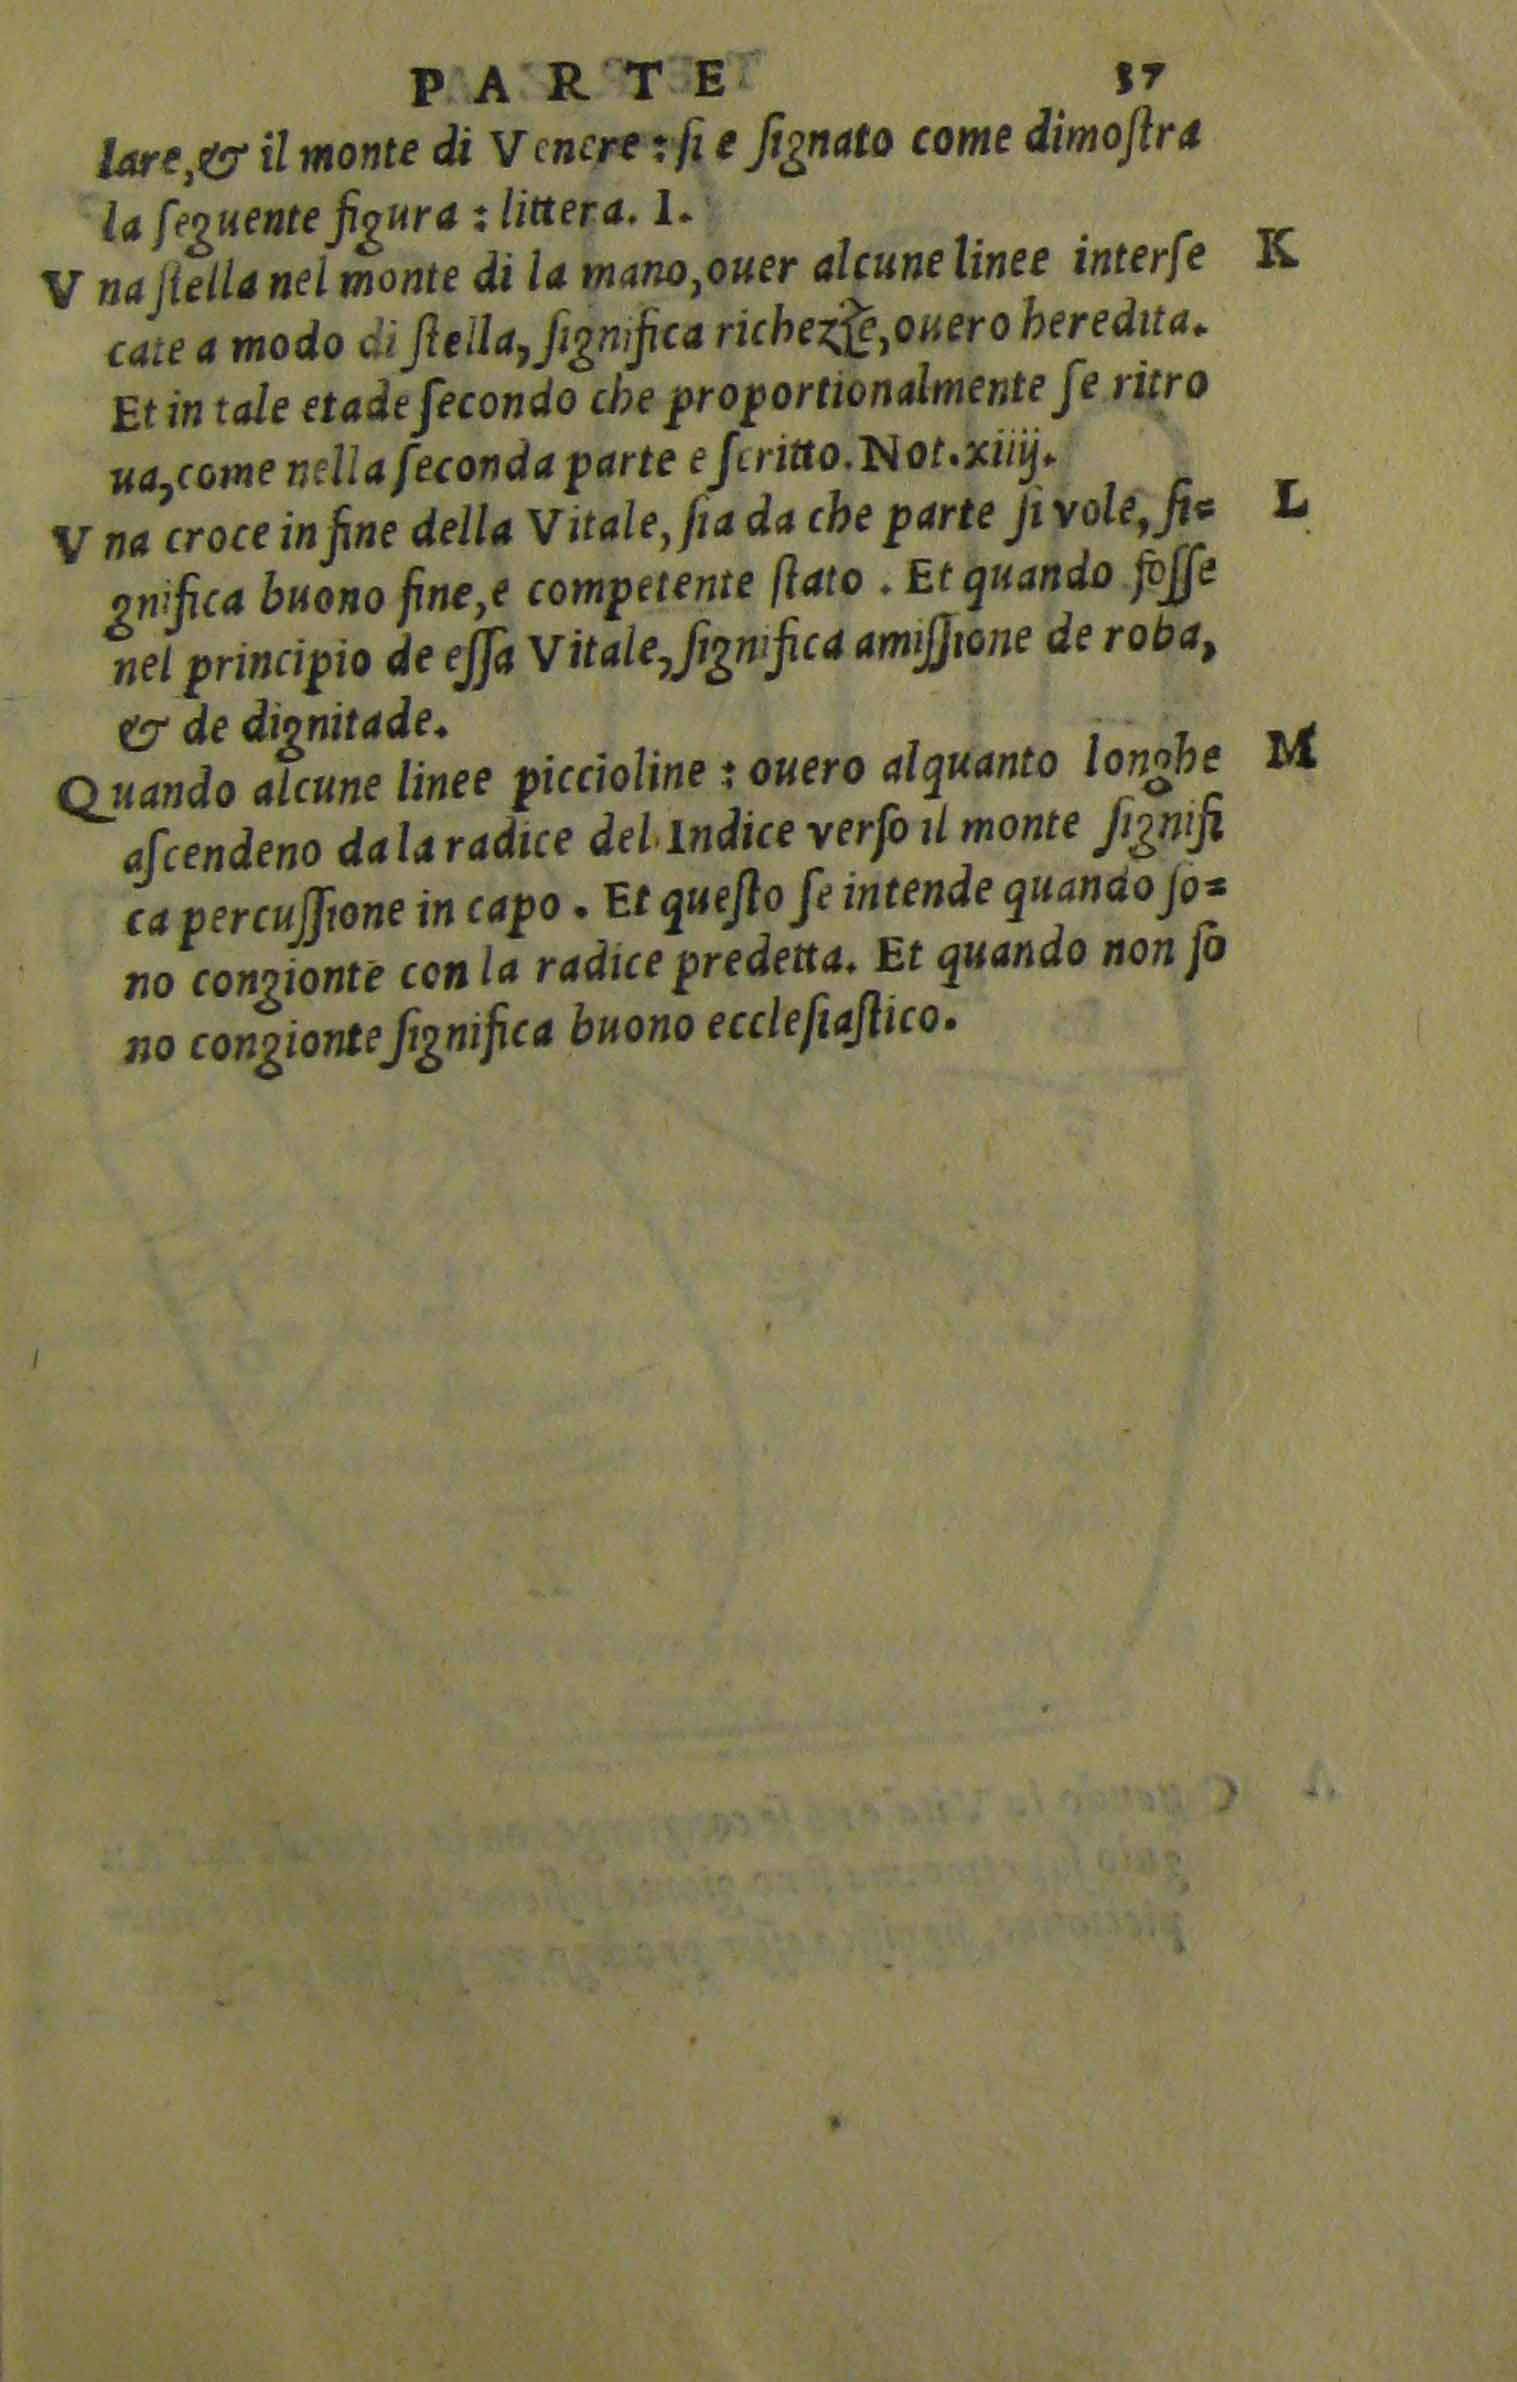 PARTE 37
lare, & il monte di Venere : ſi e ſignato come dimoſtra
la ſeguente figura : littera. I.
V na ſtella nel monte di la mano, ouer alcune linee interſe K
cate a modo di ſtella, ſignifica richezze, ouero heredita.
Et in tale etade ſecondo che proportionalmente ſe ritro
ua, come nella ſeconda parte e ſcritto. Not. xiiij.
V na croce in fine della Vitale, ſia da che parte ſi vole, ſi= L
gnifica buono fine, e competente ſtato . Et quando foſſe
nel principio de eſſa Vitale, ſignifica amiſſione de roba,
& de dignitade.
Quando alcune linee piccioline : ouero alquanto longhe M
aſcendeno da la radice del Indice verſo il monte ſignifi
ca percuſſione in capo . Et queſto ſe intende quando ſo=
no congionte con la radice predetta. Et quando non ſo
no congionte ſignifica buono eccleſiaſtico.